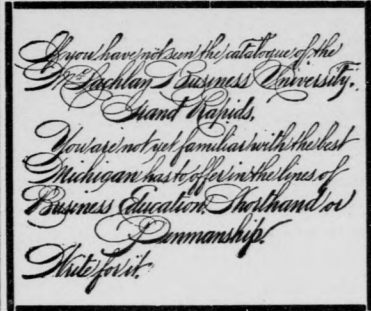 If you have not seen the catalogue of the
McLachlan Business University,
Grand Rapids,
You are not yet familiar with the best
Michigan has to offer in the lines of
Business Education, Shorthand or
Penmanship.
Write for it.